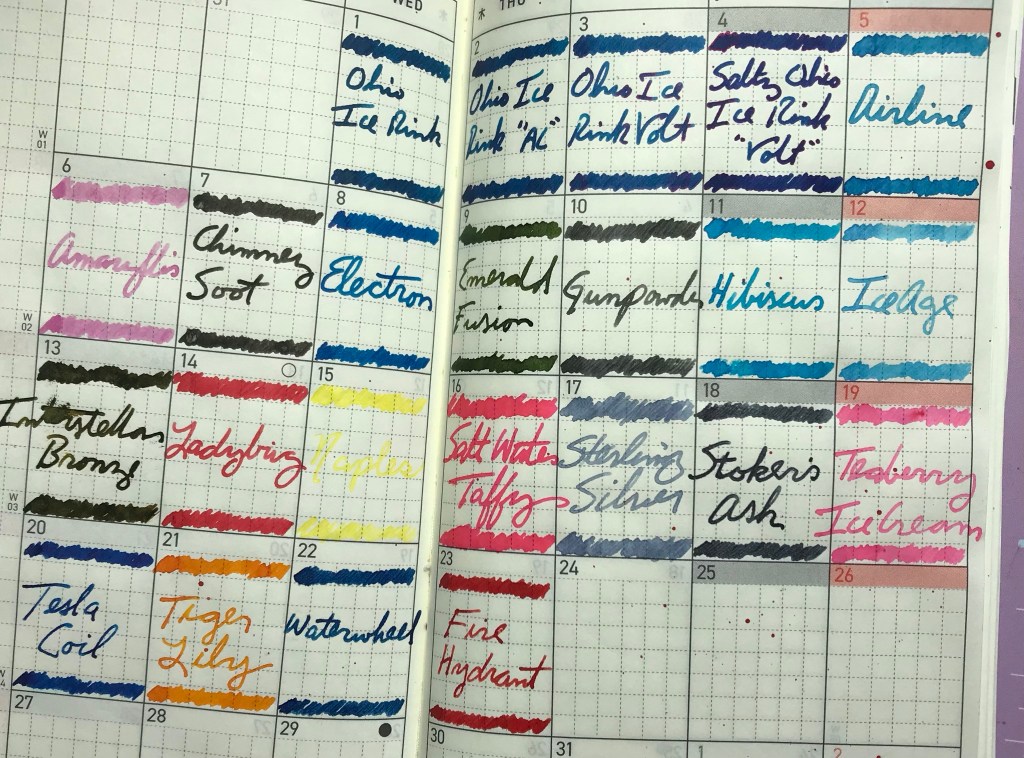 31
WED
THU
W
01
1
Ohio
Ice Rink
2
Ohio Ice
Rink "AC"
3
Ohio Ice
Rink Volt
4
Salty Ohio
Ice Rink
"Volt"
5
Airline
W
02
6
Amaryllis
7
Chimney
Soot
8
Electron
9
Emerald
Fusion
10
Gunpowder
11
Hibiscus
12
Ice Age
W
03
13
Interstellar
Bronze
14
Ladybug
15
Naples
16
Salt Water
Taffy
17
Sterling
Silver
18
Stoker's
Ash
19
Teaberry
Ice Cream
20
Tesla
Coil
21
Tiger
Lily
22
Waterwheel
23
Fire
Hydrant
24
25
26
27
28
29
30
31
1
2